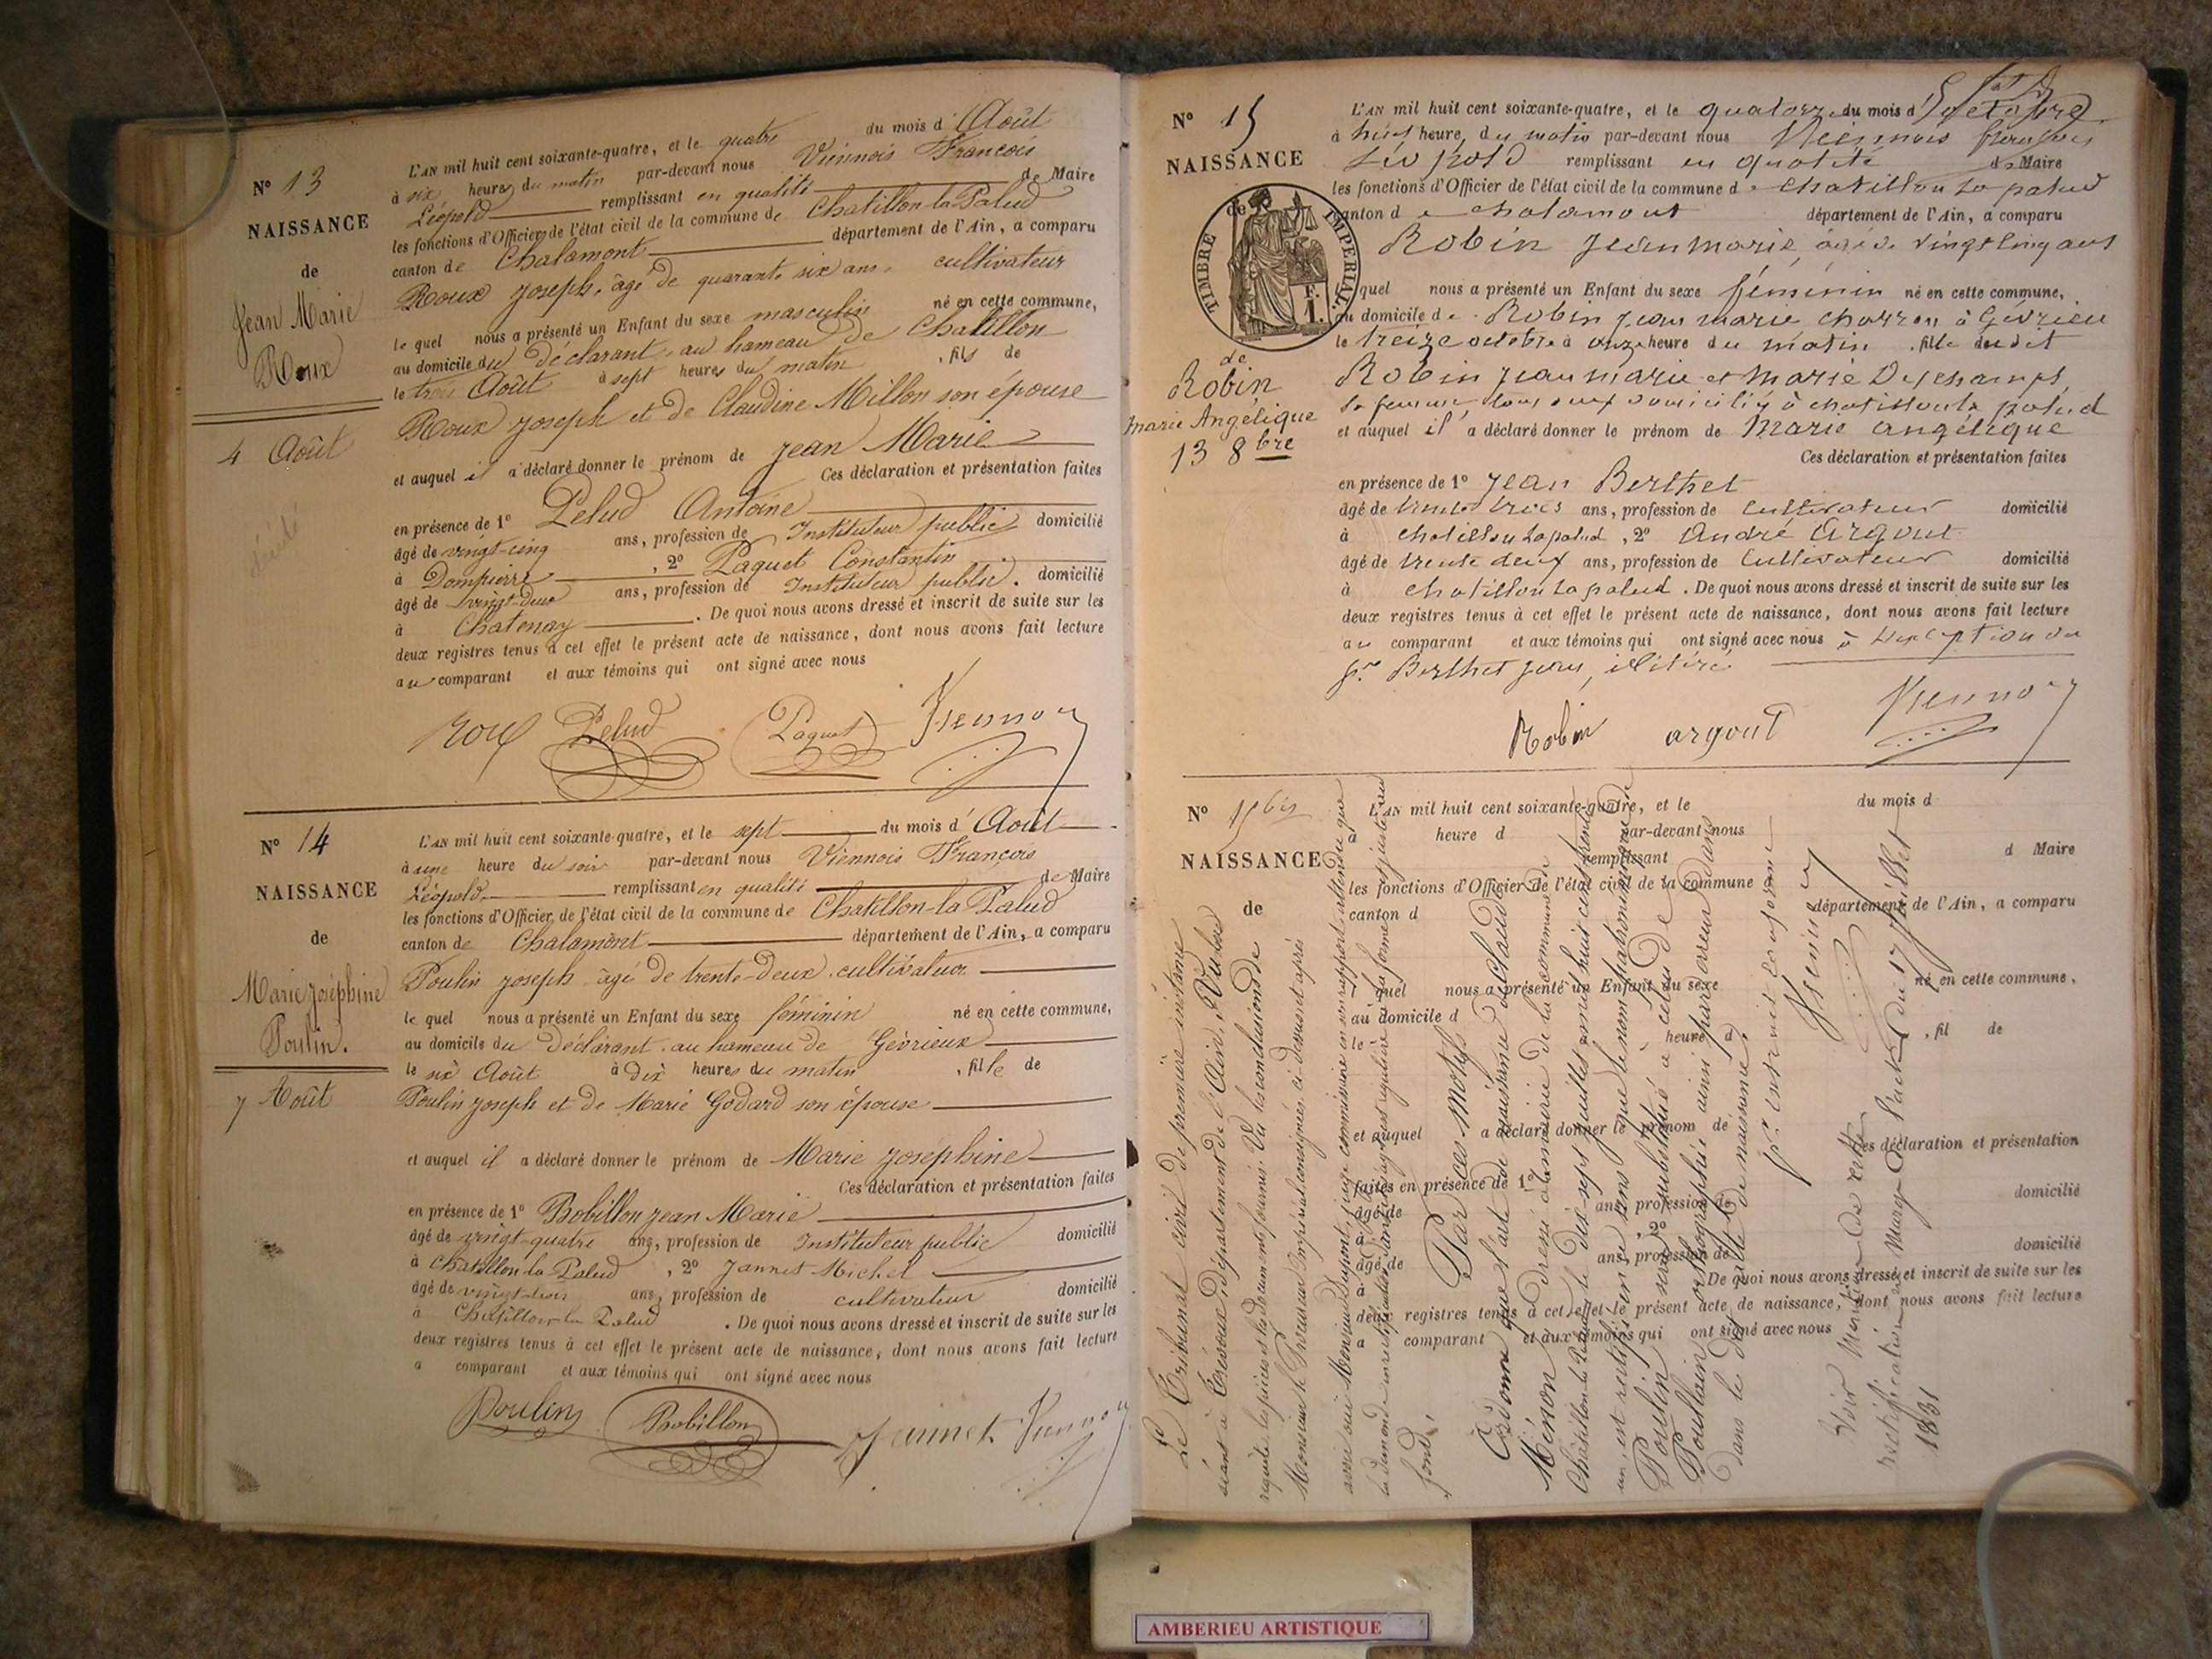 N° 13
NAISSANCE
de
Jean Marie
Roux
4 Août
décédé
L'AN mil huit cent soixante-quatre, et le quatre du mois d'Août
à six heures du matin par-devant nous Viennois François
Léopold remplissant en qualité de Maire
les fonctions d'Officier de l'état civil de la commune de Chatillon-la-Palud
canton de Chalamont département de l'Ain, a comparu
Roux Joseph, âgé de quarante six ans, cultivateur
le quel nous a présenté un Enfant du sexe masculin né en cette commune,
au domicile du déclarant, au hameau de Chatillon
le trois Août à sept heures du matin, fils de
Roux Joseph et de Claudine Millon son épouse
et auquel il a déclaré donner le prénom de Jean Marie
Ces déclaration et présentation faites
en présence de 1° Pelud Antoine
âgé de vingt-cinq ans, profession de Instituteur public domicilié
à Dompierre, 2° Paquet Constantin
âgé de vingt-deux ans, profession de Instituteur public. domicilié
à Chatenay. De quoi nous avons dressé et inscrit de suite sur les
deux registres tenus à cet effet le présent acte de naissance, dont nous avons fait lecture
au comparant et aux témoins qui ont signé avec nous
Roux Pelud Paquet Viennois
N° 14
NAISSANCE
de
Marie Joséphine
Poulin.
7 Août
L'AN mil huit cent soixante-quatre, et le sept du mois d'Août
à une heure du soir par-devant nous Viennois François
Léopold remplissant en qualité de Maire
les fonctions d'Officier de l'état civil de la commune de Chatillon-la-Palud
canton de Chalamont département de l'Ain, a comparu
Poulin Joseph âgé de trente-deux cultivateur
le quel nous a présenté un Enfant du sexe féminin né en cette commune,
au domicile du déclarant au hameau de Gévrieux
le six Août à dix heures du matin, fille de
Poulin Joseph et de Marie Godard son épouse
et auquel il a déclaré donner le prénom de Marie Joséphine
Ces déclaration et présentation faites
en présence de 1° Bobillon Jean Marie
âgé de vingt-quatre ans, profession de Instituteur public domicilié
à Chatillon-la-Palud, 2° Jannet Michel
âgé de vingt-trois ans, profession de cultivateur domicilié
à Chatillon-la-Palud. De quoi nous avons dressé et inscrit de suite sur les
deux registres tenus à cet effet le présent acte de naissance, dont nous avons fait lecture
a comparant et aux témoins qui ont signé avec nous
Poulin Bobillon Jannet Viennois
N° 15
NAISSANCE
TIMBRE IMPÉRIAL
F. 1.
de
Robin
Marie Angélique
13 8bre
L'AN mil huit cent soixante-quatre, et le quatorze du mois d'octobre
à huit heure, du matin par-devant nous Viennois François
Léopold remplissant en qualité de Maire
les fonctions d'Officier de l'état civil de la commune de Chatillon la palud
canton de chalamont département de l'Ain, a comparu
Robin jean marie, âgé de vingt cinq ans
quel nous a présenté un Enfant du sexe féminin né en cette commune,
au domicile de Robin jean marie charron à Gévrieu
le treize octobre à onze heure du matin, fille dudit
Robin jean marie et marie Deschamps
sa femme tous deux domiciliés à chatillon la palud
et auquel il a déclaré donner le prénom de Marie angélique
Ces déclaration et présentation faites
en présence de 1° Jean Berthet
âgé de trente trois ans, profession de cultivateur domicilié
à chatillon la palud, 2° André Argout
âgé de trente deux ans, profession de cultivateur domicilié
à chatillon la palud. De quoi nous avons dressé et inscrit de suite sur les
deux registres tenus à cet effet le présent acte de naissance, dont nous avons fait lecture
au comparant et aux témoins qui ont signé avec nous à l'exception du
sr Berthet jean, illitéré
Robin argout Viennois
N° 15 bis
NAISSANCE
de
L'AN mil huit cent soixante-quatre, et le du mois d
à heure d par-devant nous
remplissant d Maire
les fonctions d'Officier de l'état civil de la commune
canton d département de l'Ain, a comparu
l quel nous a présenté un Enfant du sexe né en cette commune,
au domicile d
le heure d, fil de
et auquel a déclaré donner le prénom de
Ces déclaration et présentation
faites en présence de 1°
âgé de ans, profession de domicilié
à 2°
âgé de ans, profession de domicilié
à De quoi nous avons dressé et inscrit de suite sur les
deux registres tenus à cet effet le présent acte de naissance, dont nous avons fait lecture
a comparant et aux témoins qui ont signé avec nous
Le Tribunal civil de première instance
séant à Trévoux, département de l'Ain, Vu la
requête, les pièces et les documents fournis. Vu les conclusions de
Monsieur le Procureur Impérial consignées ci-dessus et après
avoir ouï Monsieur Dupont, juge commissaire en son rapport attendu que
la demande en rectification dont s'agit est régulière en la forme et juste au
fond;
Par ces Motifs
Ordonne que l'acte de naissance de Claude
Ménon dressé à la mairie de la commune de
Châtillon la Palud le dix-sept juillet mil huit cent trente
un est rectifié en ce sens que le nom patronymique de
Poulin sera substitué à celui de
Poullain orthographié ainsi par erreur dans
Dans le dit acte de naissance.
Pr Extrait conforme
Viennois
Voir Mention de cette
rectification en marge de l'acte du 17 Juillet
1831